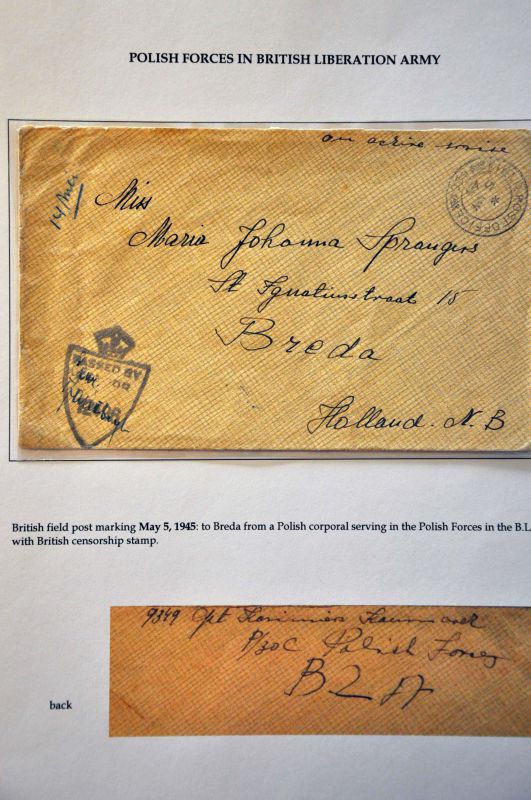 POLISH FORCES IN BRITISH LIBERATION ARMY
on active service
14/mei
POST OFFICE
Miss
Maria Johanna Sprangers
St Ignatiusstraat 15
Breda
Holland. N. B
PASSED BY
British field post marking May 5, 1945: to Breda from a Polish corporal serving in the Polish Forces in the B.L
with British censorship stamp.
9349 Cpl
P/30C Polish Forces
B L A
back